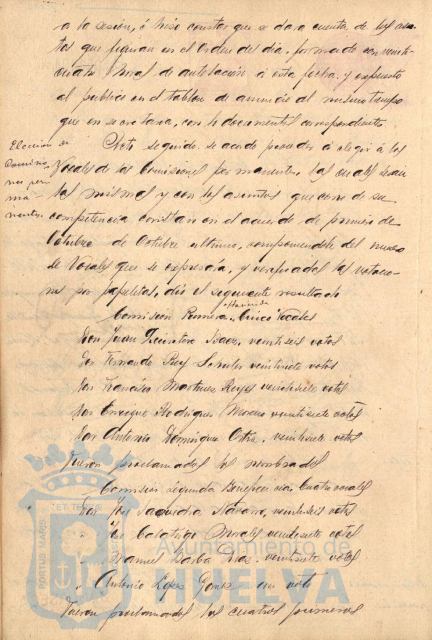 a la sesión, é hizo constar que se dara cuenta de los asun
tos que figuran en el Orden del dia, formado con veinti
cuatro horas de antelación á esta fecha y expuesto
al publico en el tablon de anuncios al mismo tiempo
que en secretaria, con los documentos correspondientes
Elección de
Comisio
nes per
ma-
nentes
Acto seguido, se acordó proceder á elegir á los
Vocales de las Comisiones permanentes, las cuales sean
las mismas y con los asuntos que como de su
competencia constan en el acuerdo de primero de
Octubre de Octubre ultimo, componiendose del numero
de Vocales que se expresará, y verificadas las votacio-
nes por papeletas, dio el siguiente resultado
Comisión Primera Hacienda Cinco Vocales
Don Juan Baez, veintiseis votos
Don Fernando Rey veintisiete votos
Don Francisco Martinez Reyes veintisiete votos
Don Enrique Rodriguez Moreno veintisiete votos
Don Antonio Dominguez Ortiz, veintisiete votos
Fueron proclamados los nombrados
Comisión segunda Beneficencia, Cuatro vocales
Don José Navarro, veintiseis votos
" José Calatrigo Morales veintisiete votos
" Manuel Barba Diaz, veintisiete votos
" Antonio Lopez Gomez un voto
Fueron proclamados los cuatro primeros
PORTUS MARIS
ET TERRAE
Ayuntamiento de
HUELVA